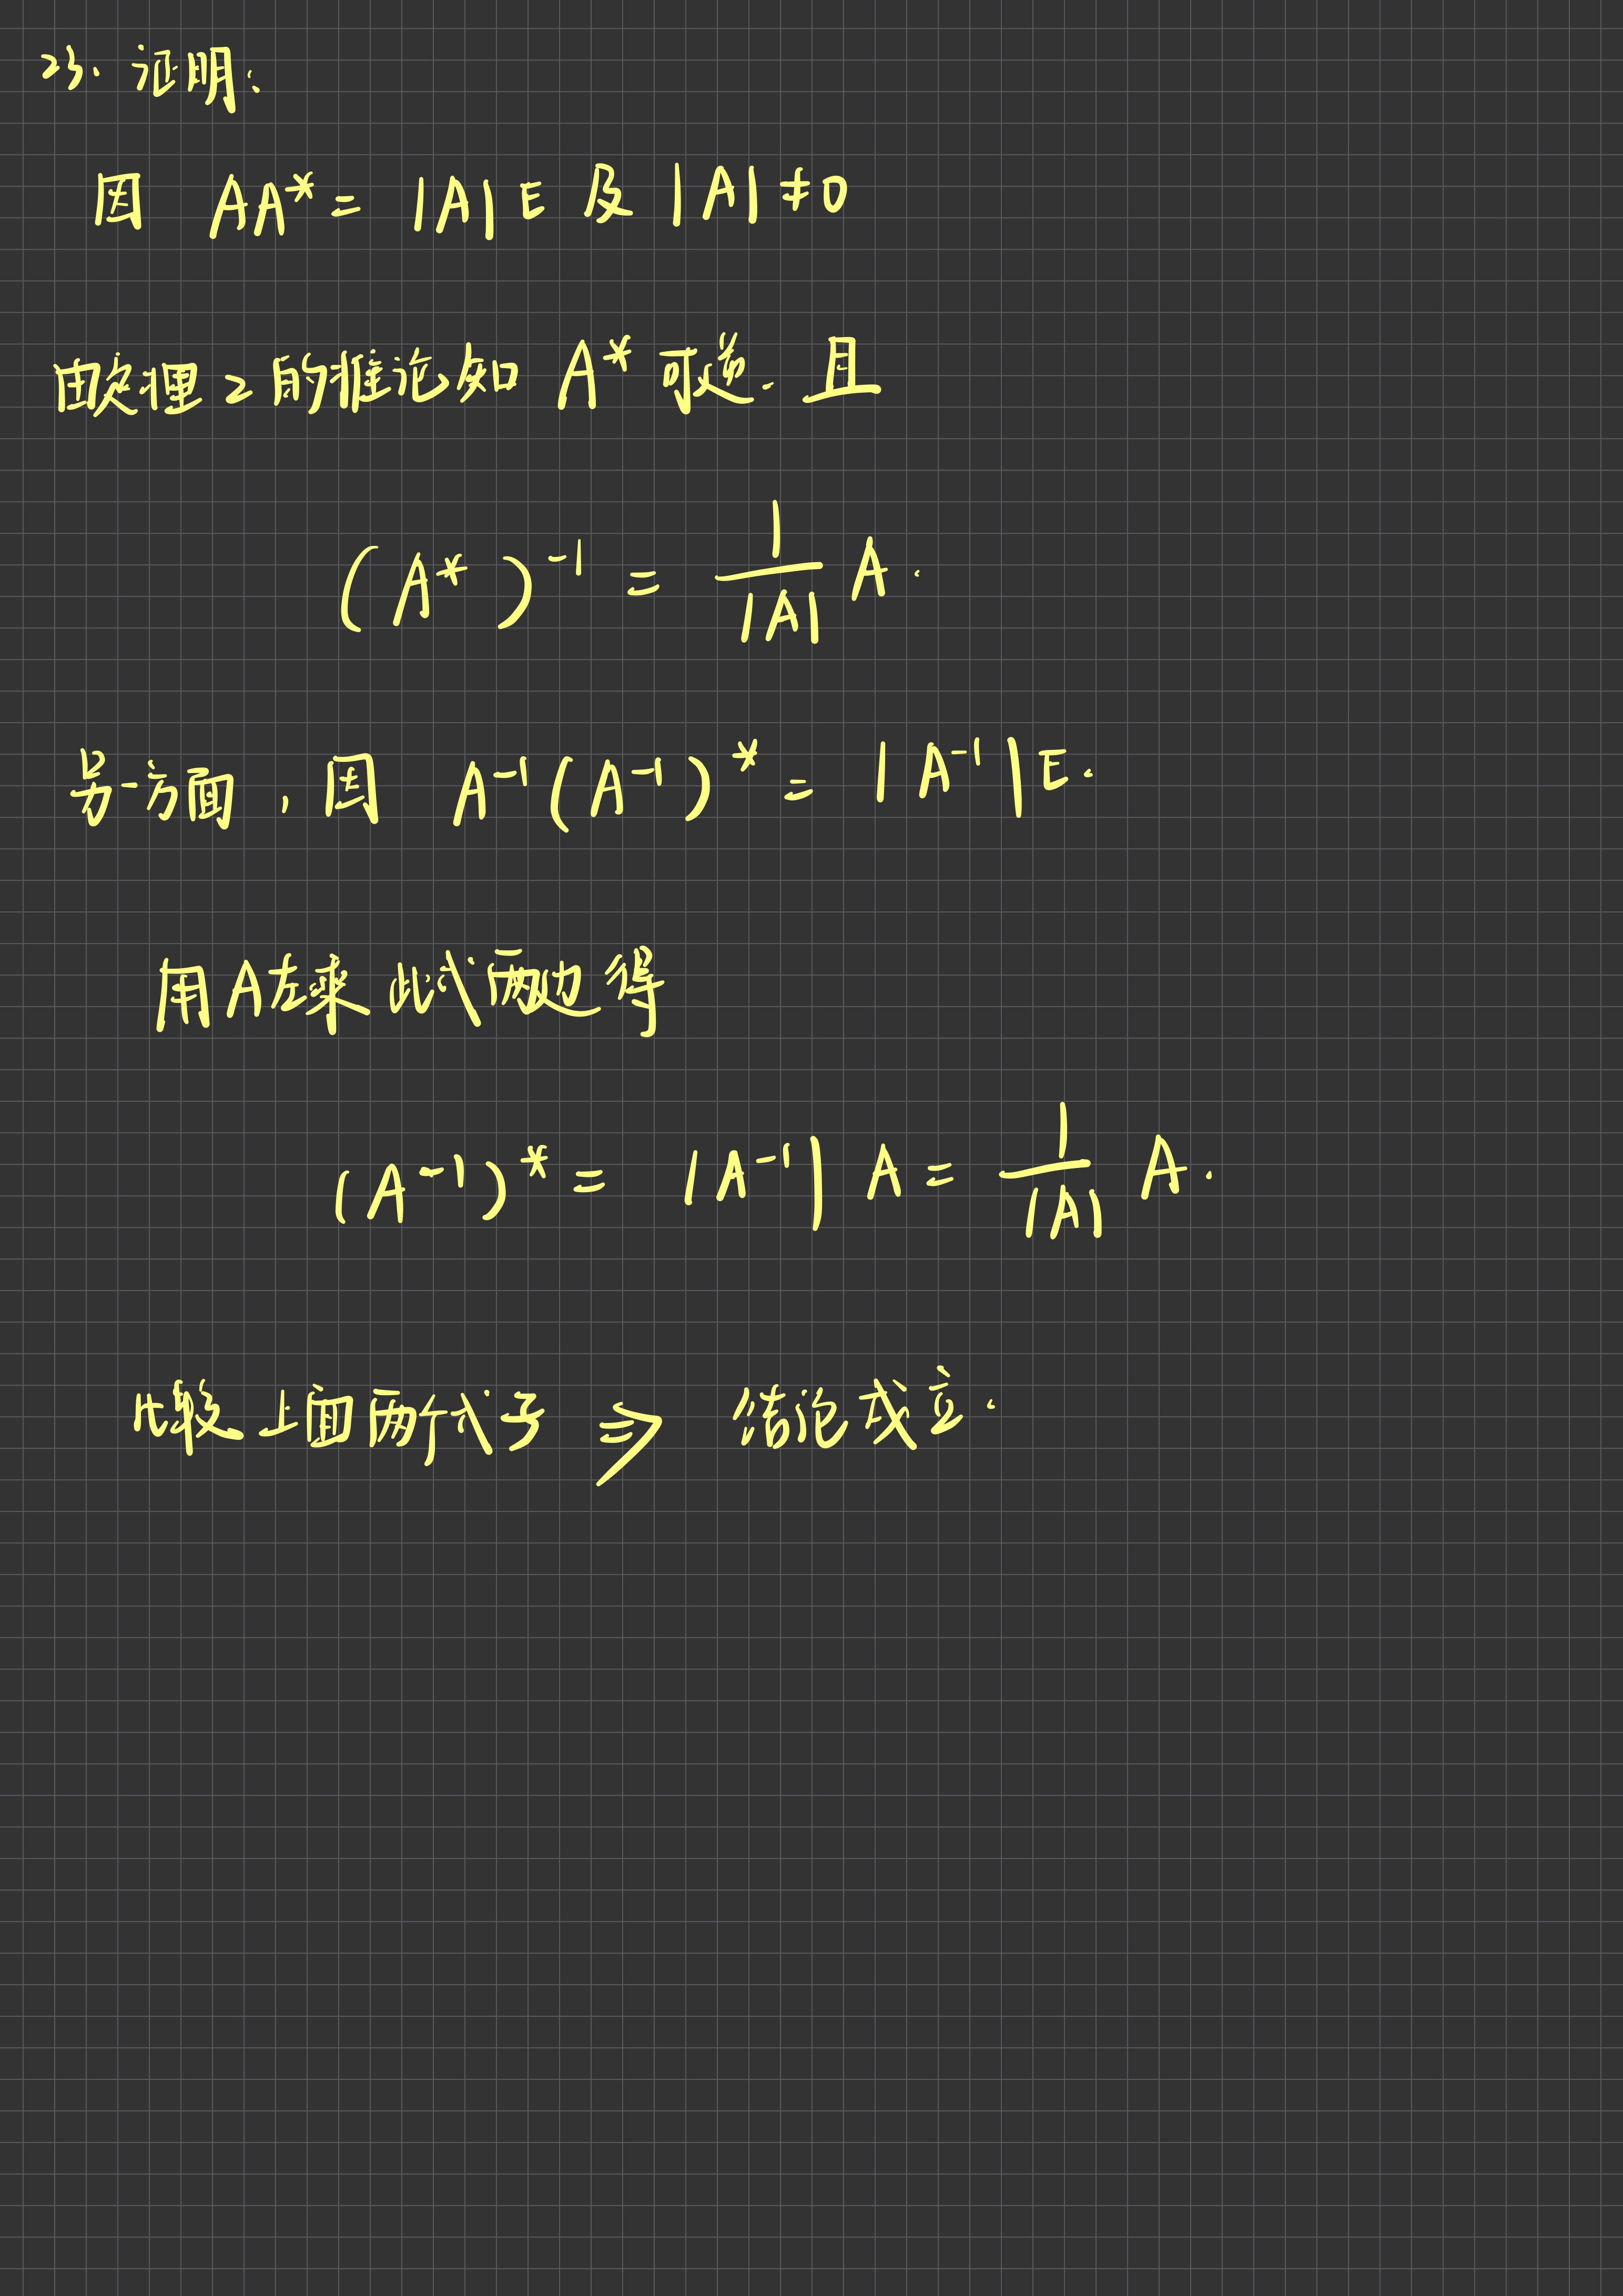 23. 证明:
因 AA* = |A|E 及 |A| ≠ 0
由定理2的推论知 A* 可逆. 且
(A*)⁻¹ = 1/|A| A.
另一方面, 因 A⁻¹(A⁻¹)* = |A⁻¹|E.
用A左乘此式两边得
(A⁻¹)* = |A⁻¹| A = 1/|A| A.
比较上面两个式子 ⇒ 结论成立.